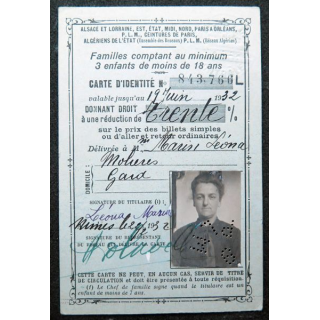 ALSACE ET LORRAINE, EST, ÉTAT, MIDI, NORD, PARIS A ORLÉANS,
P.L.M., CEINTURES DE PARIS,
ALGÉRIENS DE L'ÉTAT P.L.M.
Familles comptant au minimum
3 enfants de moins de 18 ans
CARTE D'IDENTITÉ N° 843.766L
valable jusqu'au 19 Juin 1932
DONNANT DROIT
à une réduction de Trente %
sur le prix des billets simples
ou d'aller et retour ordinaires
Délivrée à M
Molières
Gard
DOMICILE :
SIGNATURE DU TITULAIRE
Nimes le
SIGNATURE DU REPRÉSENTANT
CETTE CARTE NE PEUT, EN AUCUN CAS, SERVIR DE TITRE
DE CIRCULATION et doit être présentée à toute réquisition.
(1) Le Chef de famille signe quand le titulaire est un
enfant de moins de 7 ans.